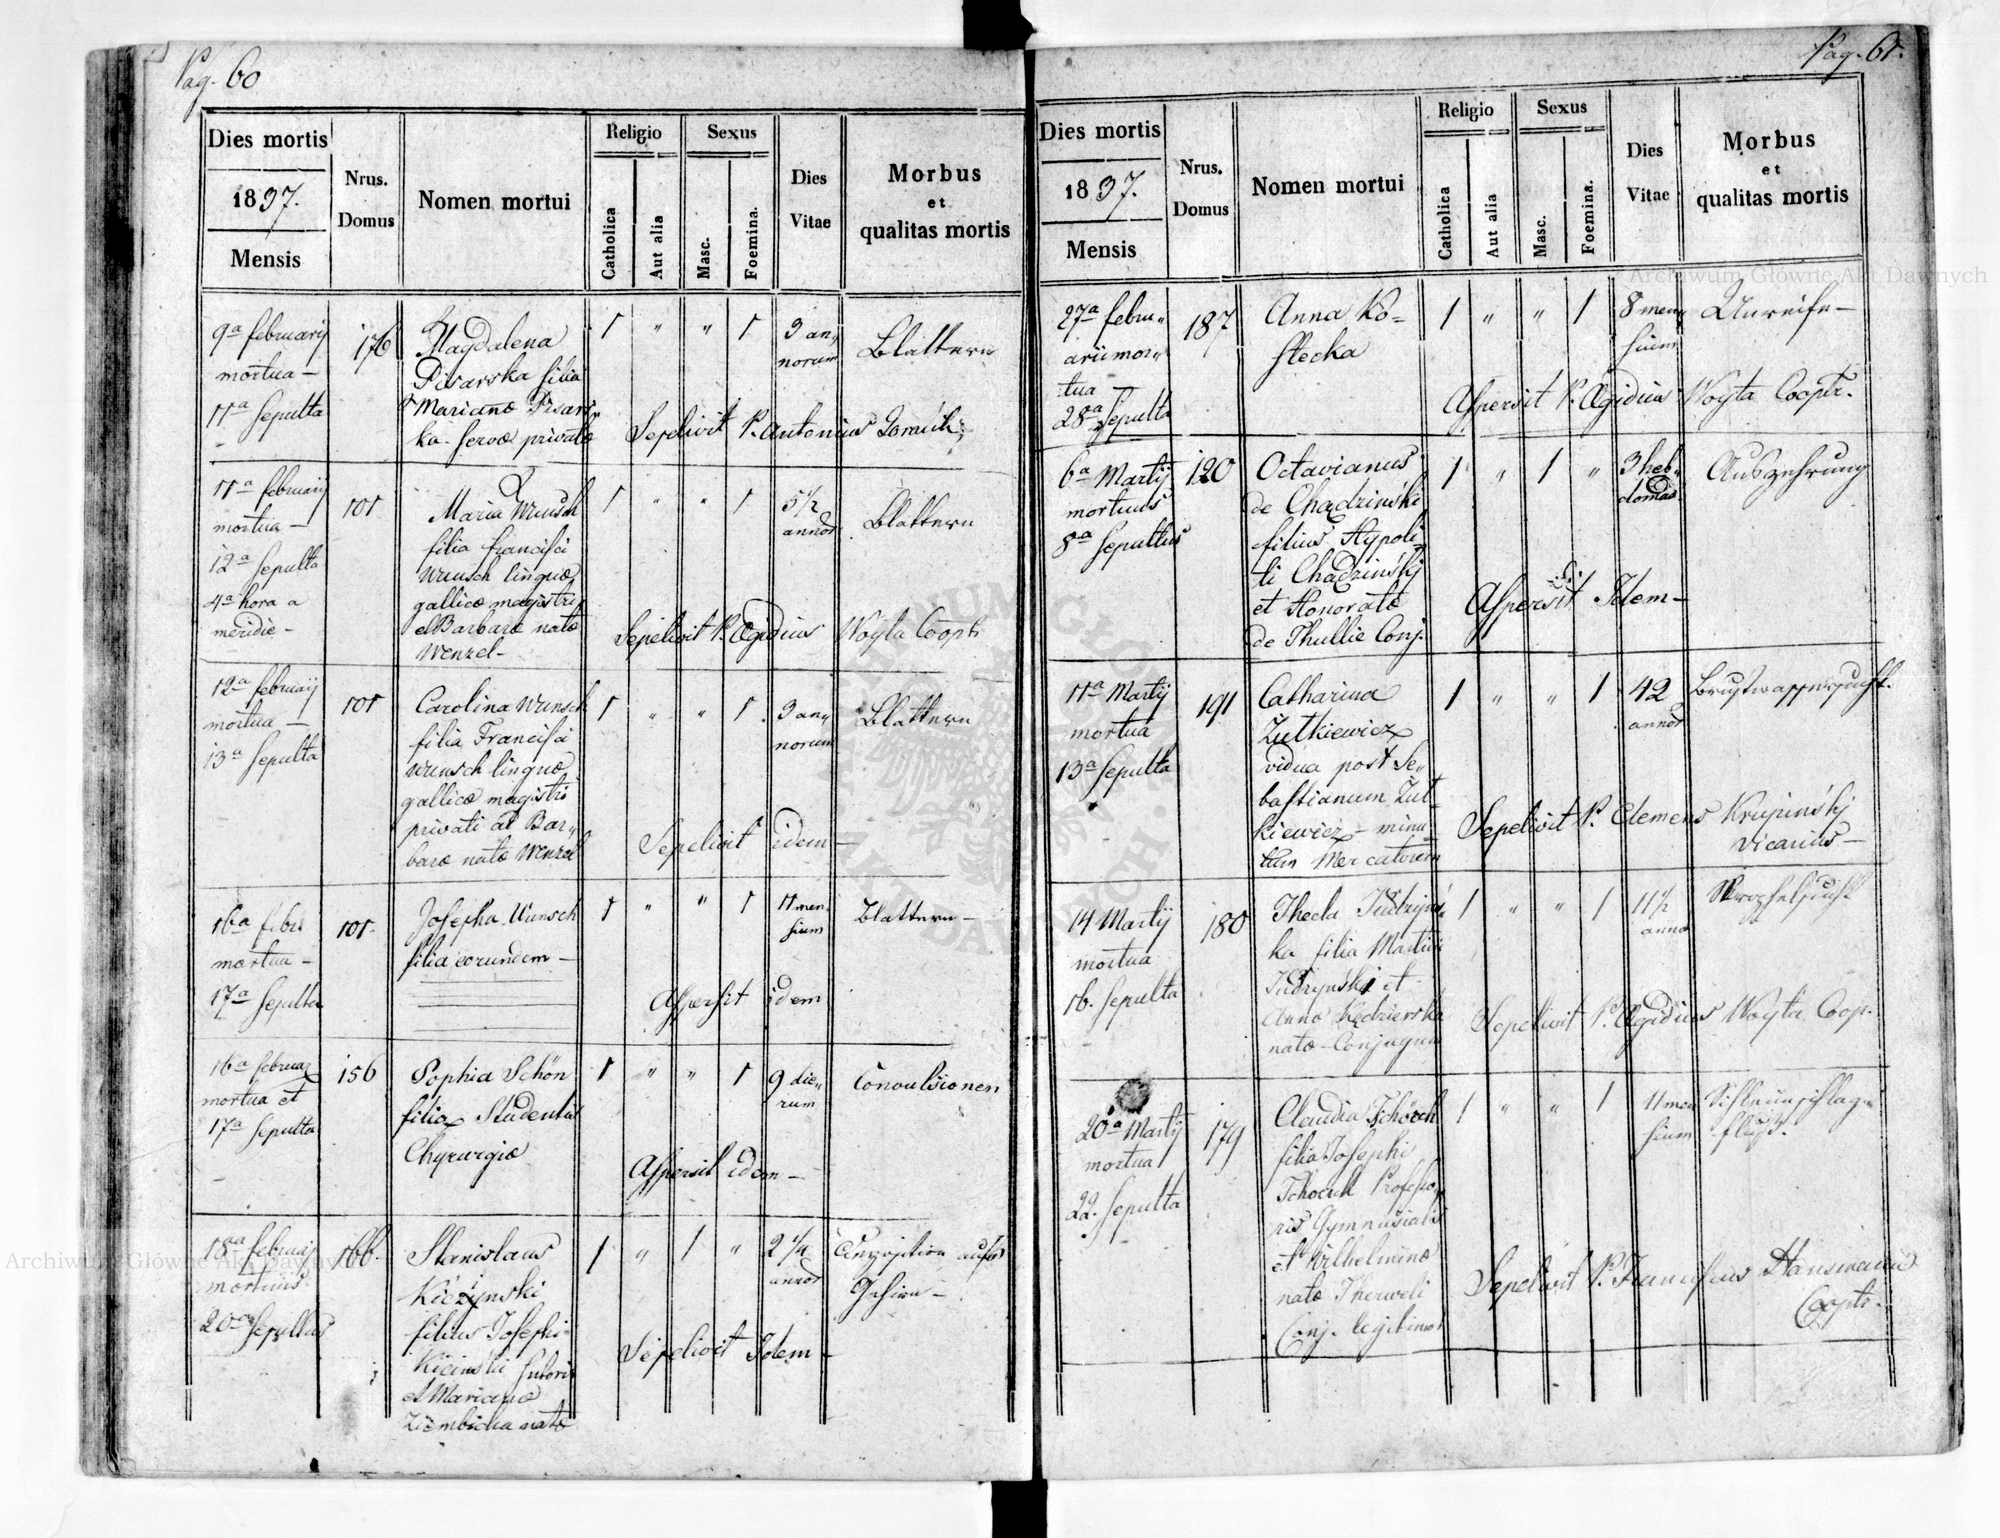 Pag. 60
Dies mortis
1837.
Mensis
Nrus.
Domus
Nomen mortui
Religio
Catholica
Aut alia
Sexus
Masc.
Foemina.
Dies
Vitae
Morbus
et
qualitas mortis
9a februarij
mortua –
11a Sepulta
176
Magdalena
Pisarska filia
Mariannæ Pisars
ka servæ privatæ
1 " " 1
3 an„
norum
Blattern
Sepelivit P. Antonius
11a februarij
mortua –
12a Sepulta
4a hora a
meridie –
101
Maria Wunsch
filia francisci
Wunsch linguæ
gallicæ magistri
et Barbaræ natæ
Wenzel –
1 " " 1
5 1/2
annor
Blattern
Sepelivit P. Ægidius Woyta Coopr
12a februarij
mortua –
13a Sepulta
101
Carolina Wunsch
filia Francisci
Wunsch linguæ
gallicæ magistri
privati at Bar„
baræ natæ Wenzel
1 " " 1
3 an„
norum
Blattern
Sepelivit idem –
16a febr
mortua –
17a Sepulta
101
Josepha Wunsch
filia eorundem –
1 " " 1
11 men
sium
Blattern –
Aspersit idem
16a februar
mortua et
17a Sepulta
156
Sophia Schön
filia Studentis
Chyrurgiæ
1 " " 1
9 die„
rum
Convulsionen
Aspersit idem –
18a februarij
mortuus
20a Sepultus
166.
Stanislaus
Kiczynski
filius Josephi
Kicinski Sutoris
et Mariannæ
Ziembicka natæ
1 " 1 "
2 1/4
annor
Gehirn –
Sepelivit Idem –
Pag. 61.
Dies mortis
1837.
Mensis
Nrus.
Domus
Nomen mortui
Religio
Catholica
Aut alia
Sexus
Masc.
Foemina.
Dies
Vitae
Morbus
et
qualitas mortis
27a febru„
arii mor„
tua –
28a Sepulta
187
Anna Ko=
stecka
1 " " 1
8 men„
sium
Unreife –
Aspersit P. Ægidius Woyta Coopr.
6a Martij
mortuus
8a Sepultus
120
Octavianus
de Chądzinski
filius Hypoli„
ti Chądzinskij
et Honoratæ
de Thullie Conj.
1 " 1 "
3 heb„
domad.
Auszehrung
Aspersit Idem –
11a Martij
mortua
13a Sepulta
191
Catharina
Zutkiewicz
vidua post Se„
bastianum Zut„
kiewicz – minu„
tum Mercatorem
1 " " 1
42
annor
Brustwassersucht.
Sepelivit P. Clemens Krupinskij
vicarius –
14 Martij
mortua
16. Sepulta
180
Thecla
ka filia Martini
et
Anna Kędzierska
natæ Conjugum
1 " " 1
11 1/2
annor
Skrophelsucht
Sepelivit P. Ægidius Woyta Coop.
20a Martij
mortua
22. Sepulta
179
Claudia Tschörch
filia Josephi
Tschörch Professo„
ris Gymnasialis
et Wilhelminæ
natæ
Conj. legitimor
1 " " 1
11 men
sium
fluß.
Sepelivit P. Franciscus Hansmann
Coopr.
Archiwum Główne Akt Dawnych
Archiwum Główne Akt Dawnych
ARCHIWUM GŁÓWNE AKT DAWNYCH